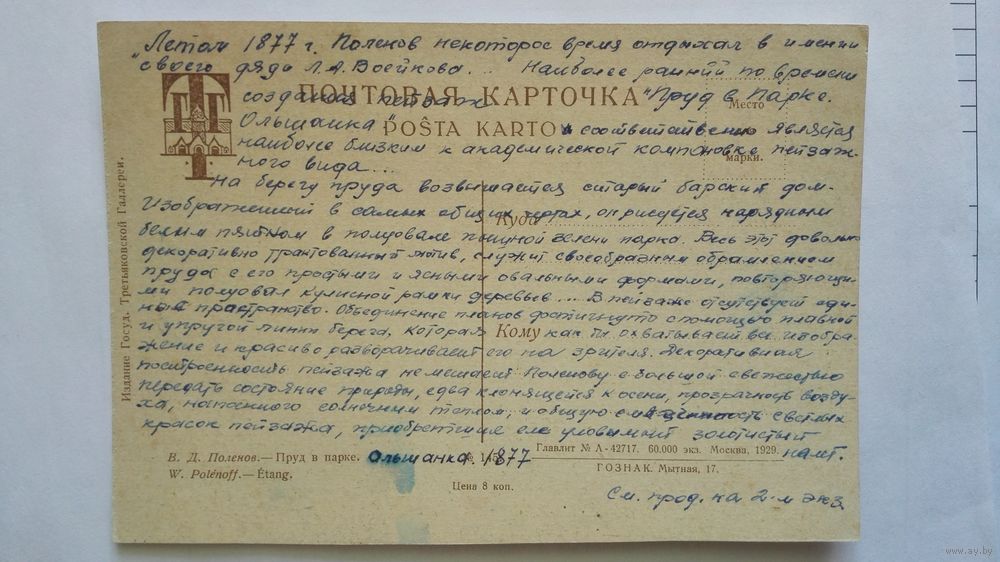 „Летом 1877 г. Поленов некоторое время отдыхал в имении
своего дяди Л.А. Воейкова... Наиболее ранний по времени
создания пейзаж "Пруд в парке.
ПОЧТОВАЯ КАРТОЧКА
Место
Ольшанка" соответственно является
POŜTA KARTO
наиболее близким к академической компоновке пейзаж-
марки.
ного вида...
На берегу пруда возвышается старый барский дом.
Изображенный в самых общих чертах, он рисуется нарядным
Куда
белым пятном в полуовале пышной зелени парка. Весь этот довольно
декоративно трактованный мотив, служит своеобразным обрамлением
пруда с его простыми и ясными овальными формами, повторяющи-
ми полуовал кулисной рамки деревьев... В пейзаже отсутствует еди-
ный пространство. Объединение планов достигнуто с помощью плавной
и упругой линии берега, которая как бы охватывает все изобра-
Кому
жение и красиво разворачивает его на зрителя. Декоративная
построенность пейзажа не мешает Поленову с большой свежестью
передать состояние природы, едва клонящейся к осени, прозрачность возду-
ха, напоенного солнечным теплом, и общую светлых
красок пейзажа, приобретшие еле уловимый золотистый
налет.
Издание Госуд. Третьяковской Галлереи.
В. Д. Поленов.— Пруд в парке. Ольшанка. 1877
W. Polénoff.— Étang.
Цена 8 коп.
Главлит № А - 42717. 60.000 экз. Москва, 1929.
ГОЗНАК. Мытная, 17.
См. прод. на 2-м экз
www.ay.by